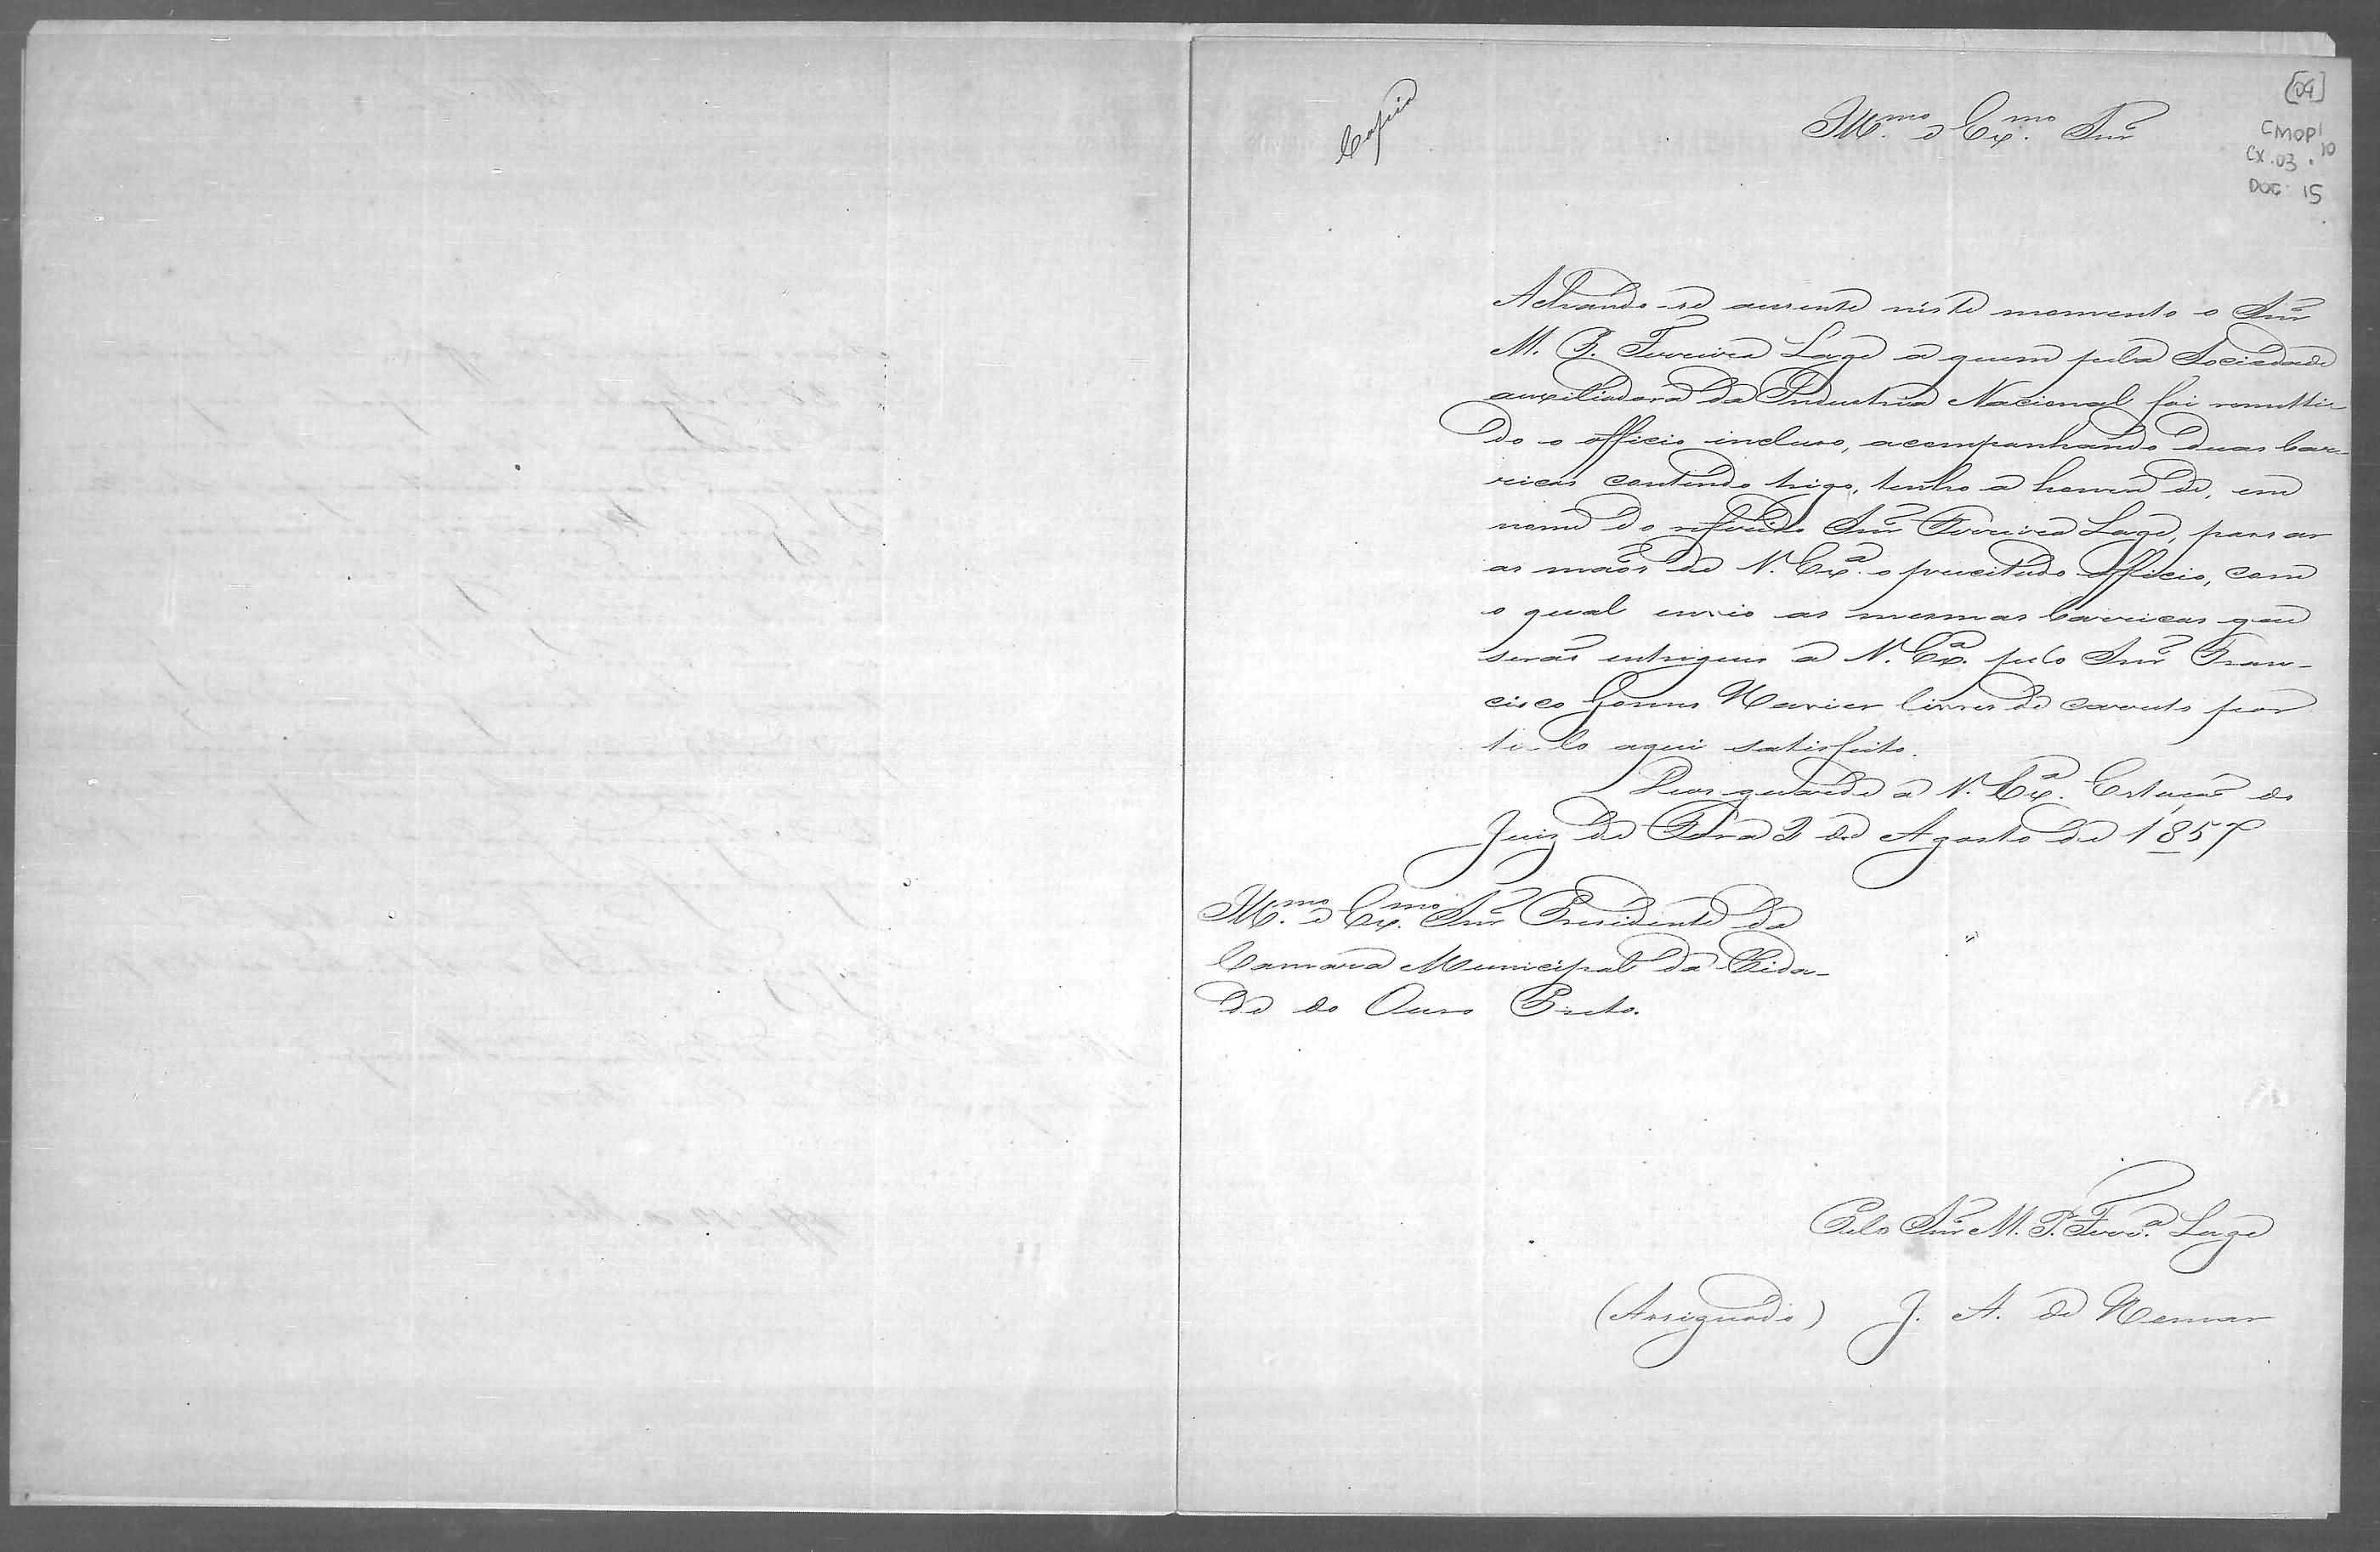 [04]
CMOP
Cx. 03 . 10
DOC 15
Copia
Ill.mo e Ex.mo Snr
Achando-se ausente néste momento o Snr
M. P. Ferreira Lage a quem pela Sociedade
auxiliadora da Industria Nacional foi remetti-
do o officio incluso, acompanhando duas bar-
ricas contendo trigo, tenho a honra de, em
nome do referido Snr Ferreira Lage, passar
as maõs de V. Ex.a o precitado officio, com
o qual envio as mesmas barricas que
seraõ entregues a V. Ex.a pelo Snr Fran-
cisco Gomes Xavier livres de carreto por
te-lo aqui satisfeito.
Deos guarde a V. Ex.a Estaçaõ do
Juiz de Fora 2 de Agosto de 1857
Ill.mo e Ex.mo Snr Presidente da
Camara Municipal da Cida-
de do Ouro Preto.
Pelo Snr M. P. Ferr.a Lage
(Assignado) J. A. de